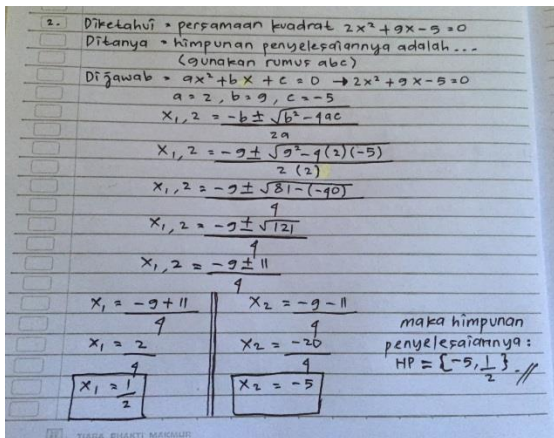 2. Diketahui = persamaan kuadrat 2x² + 9x - 5 = 0
Ditanya = himpunan penyelesaiannya adalah ...
(gunakan rumus abc)
Dijawab = ax² + bx + c = 0 → 2x² + 9x - 5 = 0
a = 2, b = 9, c = -5
x₁,2 = (-b ± √(b² - 4ac)) / 2a
x₁,2 = (-9 ± √(9² - 4(2)(-5))) / 2(2)
x₁,2 = (-9 ± √(81 - (-40))) / 4
x₁,2 = (-9 ± √121) / 4
x₁,2 = (-9 ± 11) / 4
x₁ = (-9 + 11) / 4
x₁ = 2/4
x₁ = 1/2
x₂ = (-9 - 11) / 4
x₂ = -20/4
x₂ = -5
maka himpunan
penyelesaiannya :
HP = {-5, 1/2} //
TIARA BHAKTI MAKMUR